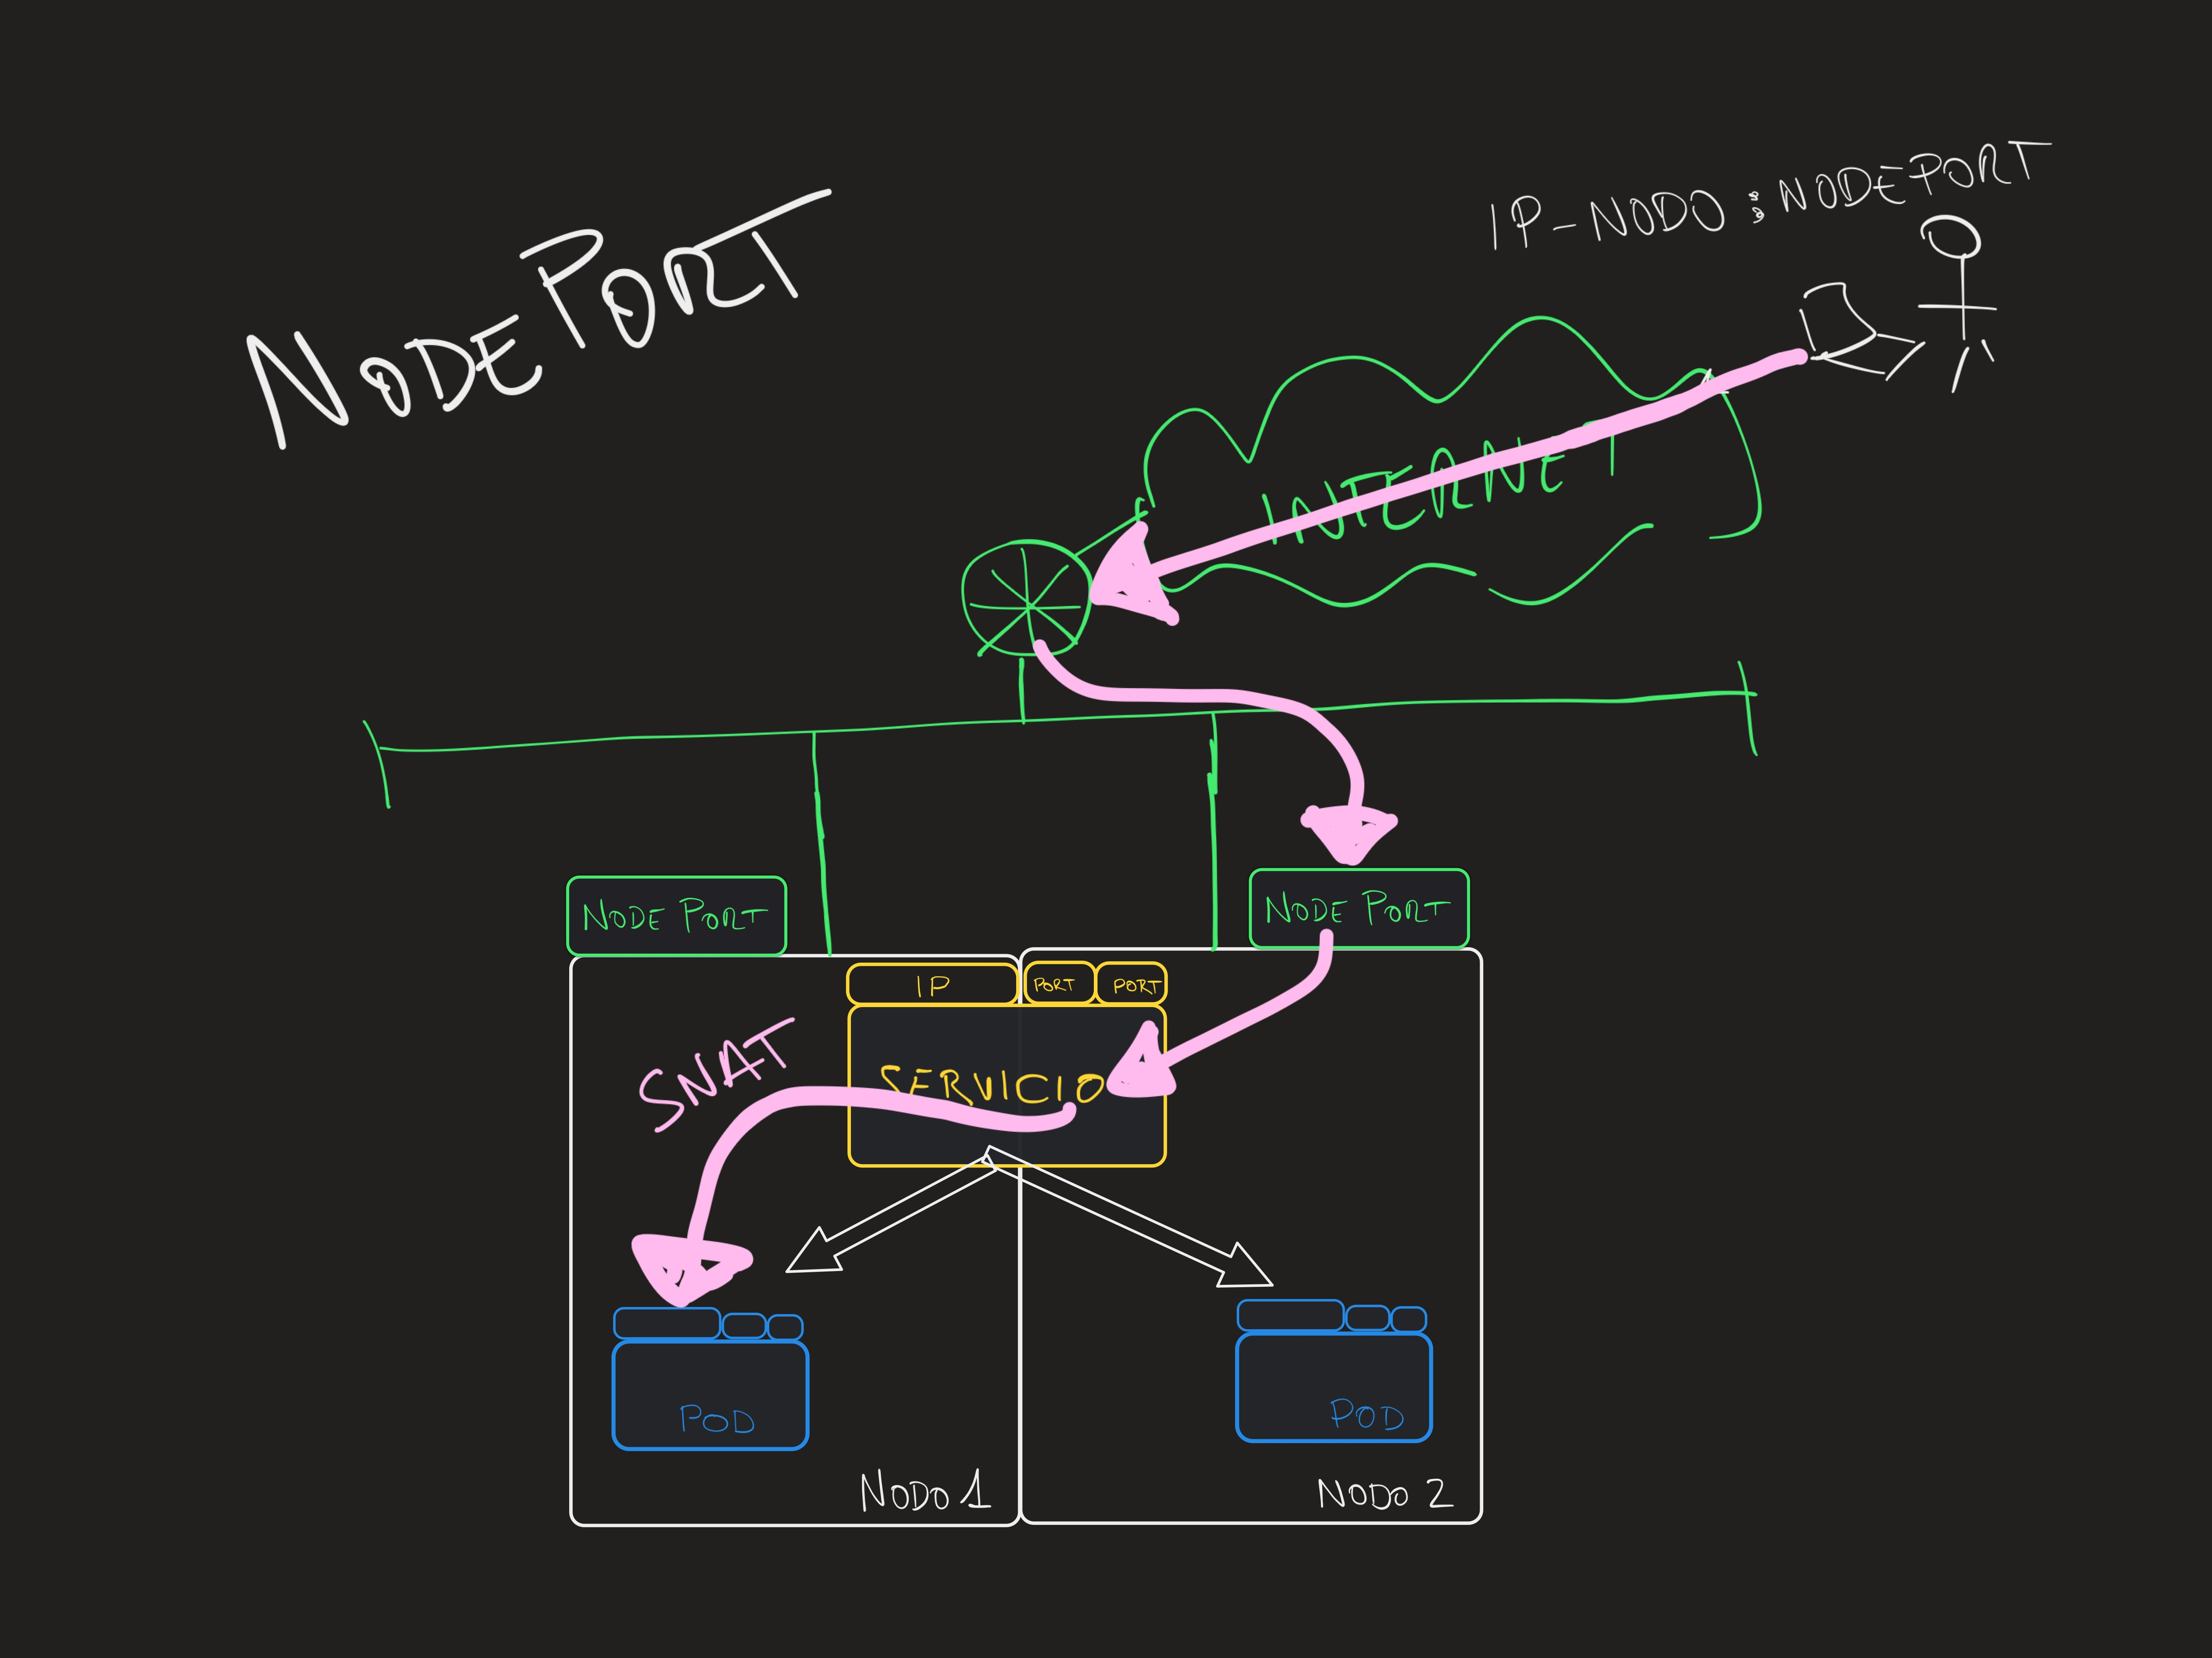 NODEPORT
IP-NODO:NODEPORT
INTERNET
NODE PORT
NODE PORT
IP
PORT
PORT
SNAT
SERVICIO
POD
POD
NODO 1
NODO 2